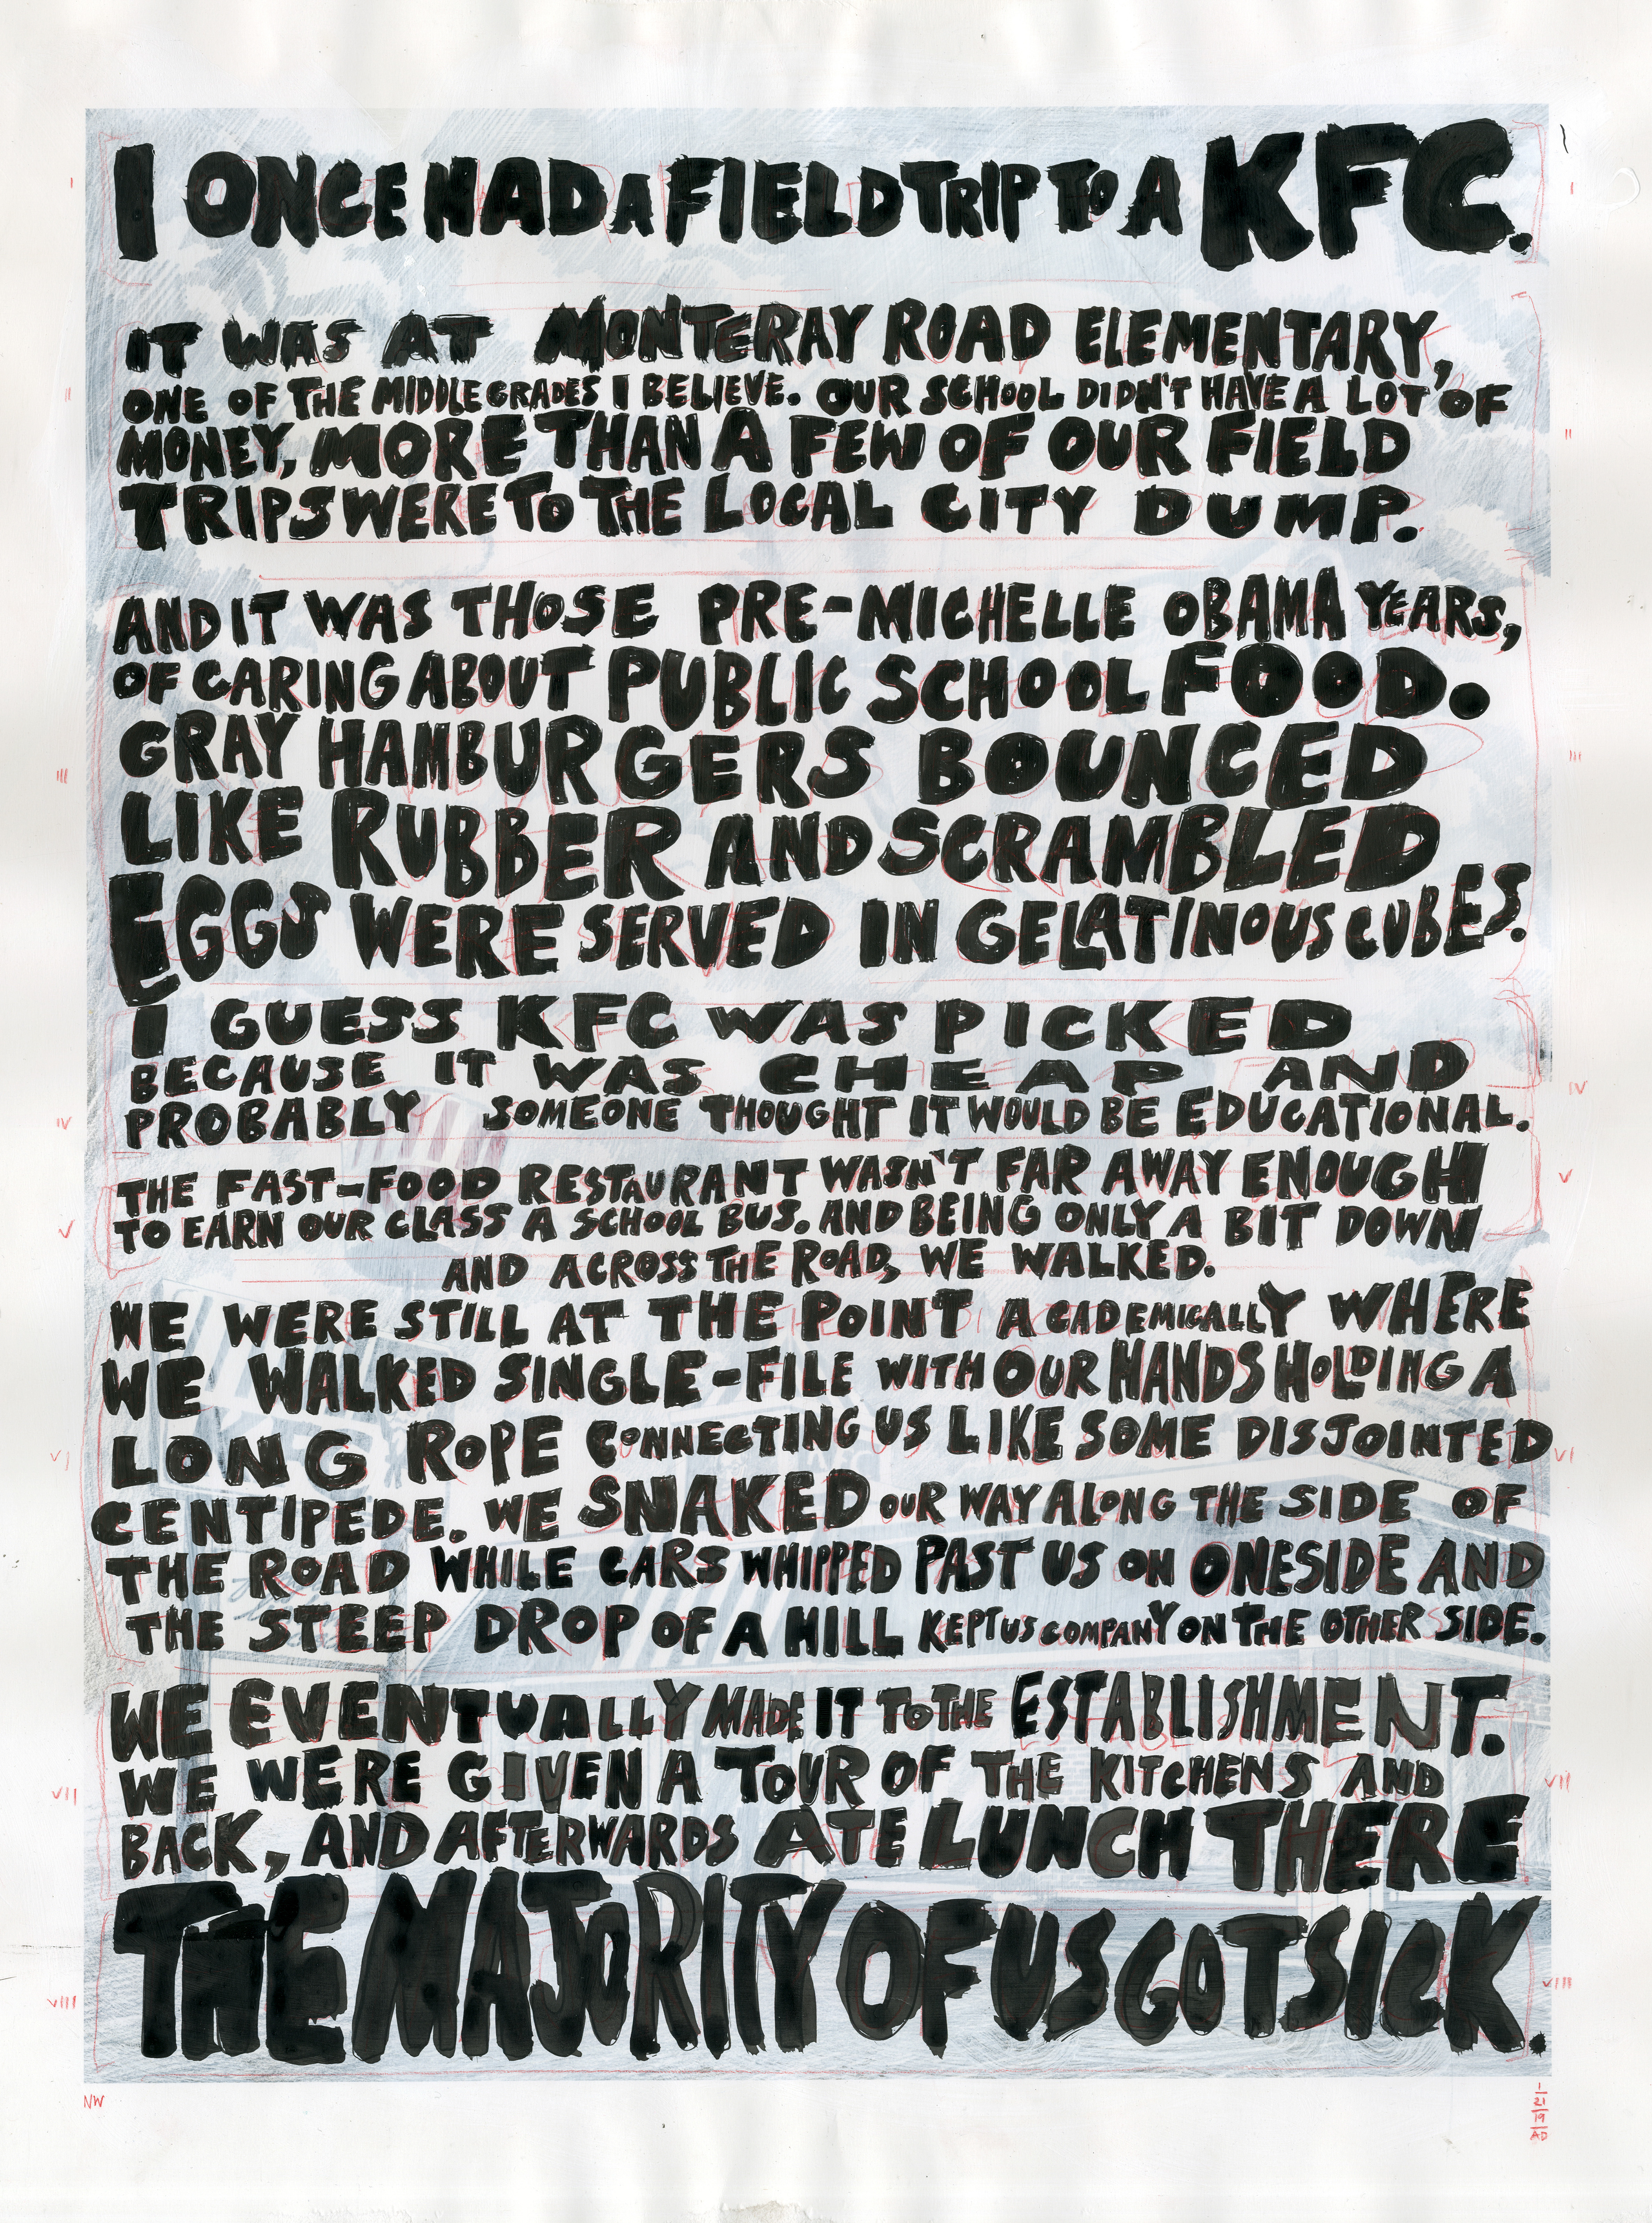 I ONCE HAD A FIELD TRIP TO A KFC.
IT WAS AT MONTERAY ROAD ELEMENTARY,
ONE OF THE MIDDLE GRADES I BELIEVE. OUR SCHOOL DIDN'T HAVE A LOT OF
MONEY, MORE THAN A FEW OF OUR FIELD
TRIPS WERE TO THE LOCAL CITY DUMP.
AND IT WAS THOSE PRE-MICHELLE OBAMA YEARS,
OF CARING ABOUT PUBLIC SCHOOL FOOD.
GRAY HAMBURGERS BOUNCED
LIKE RUBBER AND SCRAMBLED
EGGS WERE SERVED IN GELATINOUS CUBES.
I GUESS KFC WAS PICKED
BECAUSE IT WAS CHEAP AND
PROBABLY SOMEONE THOUGHT IT WOULD BE EDUCATIONAL.
THE FAST-FOOD RESTAURANT WASN'T FAR AWAY ENOUGH
TO EARN OUR CLASS A SCHOOL BUS. AND BEING ONLY A BIT DOWN
AND ACROSS THE ROAD, WE WALKED.
WE WERE STILL AT THE POINT ACADEMICALLY WHERE
WE WALKED SINGLE-FILE WITH OUR HANDS HOLDING A
LONG ROPE CONNECTING US LIKE SOME DISJOINTED
CENTIPEDE. WE SNAKED OUR WAY ALONG THE SIDE OF
THE ROAD WHILE CARS WHIPPED PAST US ON ONE SIDE AND
THE STEEP DROP OF A HILL KEPT US COMPANY ON THE OTHER SIDE.
WE EVENTUALLY MADE IT TO THE ESTABLISHMENT.
WE WERE GIVEN A TOUR OF THE KITCHENS AND
BACK, AND AFTERWARDS ATE LUNCH THERE
THE MAJORITY OF US GOT SICK.
I I
II II
III III
IV IV
V V
VI VI
VII VII
VIII VIII
NW
1
21
19
AD